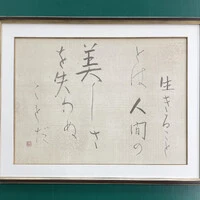 生きること
とは 人間の
美しさ
を失わぬ
ことだ